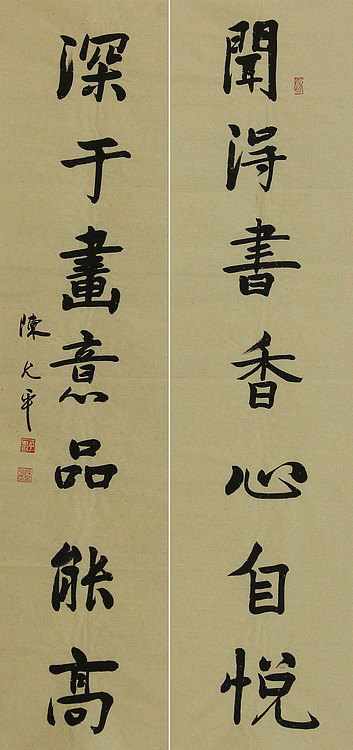 聞得書香心自悅
深于畫意品能高
陳允平